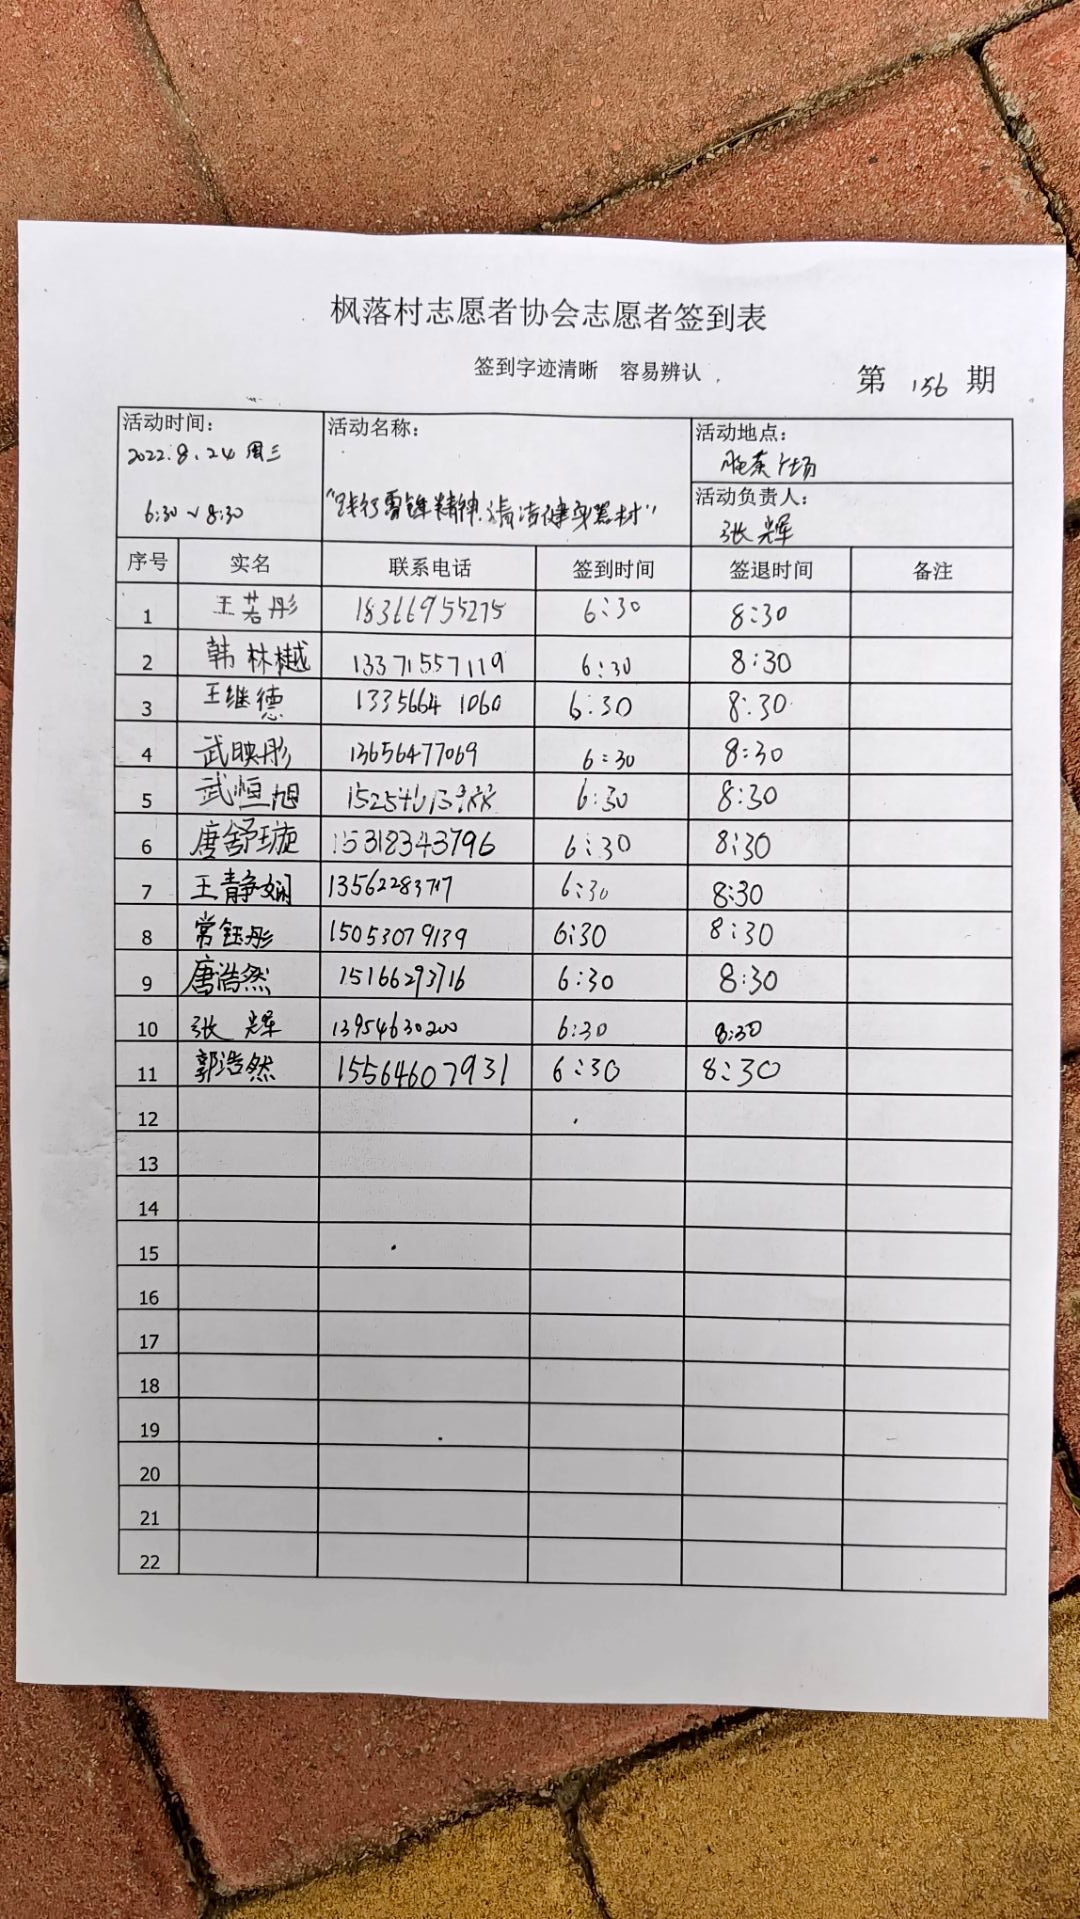 枫落村志愿者协会志愿者签到表
签到字迹清晰 容易辨认
第 156 期
活动时间: 2022.8.24 周三 6:30~8:30
活动名称: "践行雷锋精神.清洁健身器材"
活动地点: 广场
活动负责人: 张辉
序号 实名 联系电话 签到时间 签退时间 备注
1 王若彤 18366955275 6:30 8:30
2 韩林樾 13371557119 6:30 8:30
3 王继德 13356641060 6:30 8:30
4 武映彤 13656477069 6:30 8:30
5 武恒旭 6:30 8:30
6 唐舒璇 15318343796 6:30 8:30
7 王静娴 6:30 8:30
8 常钰彤 15053079139 6:30 8:30
9 唐浩然 15166293716 6:30 8:30
10 张辉 13954630200 6:30 8:30
11 郭浩然 15564607931 6:30 8:30
12
13
14
15
16
17
18
19
20
21
22